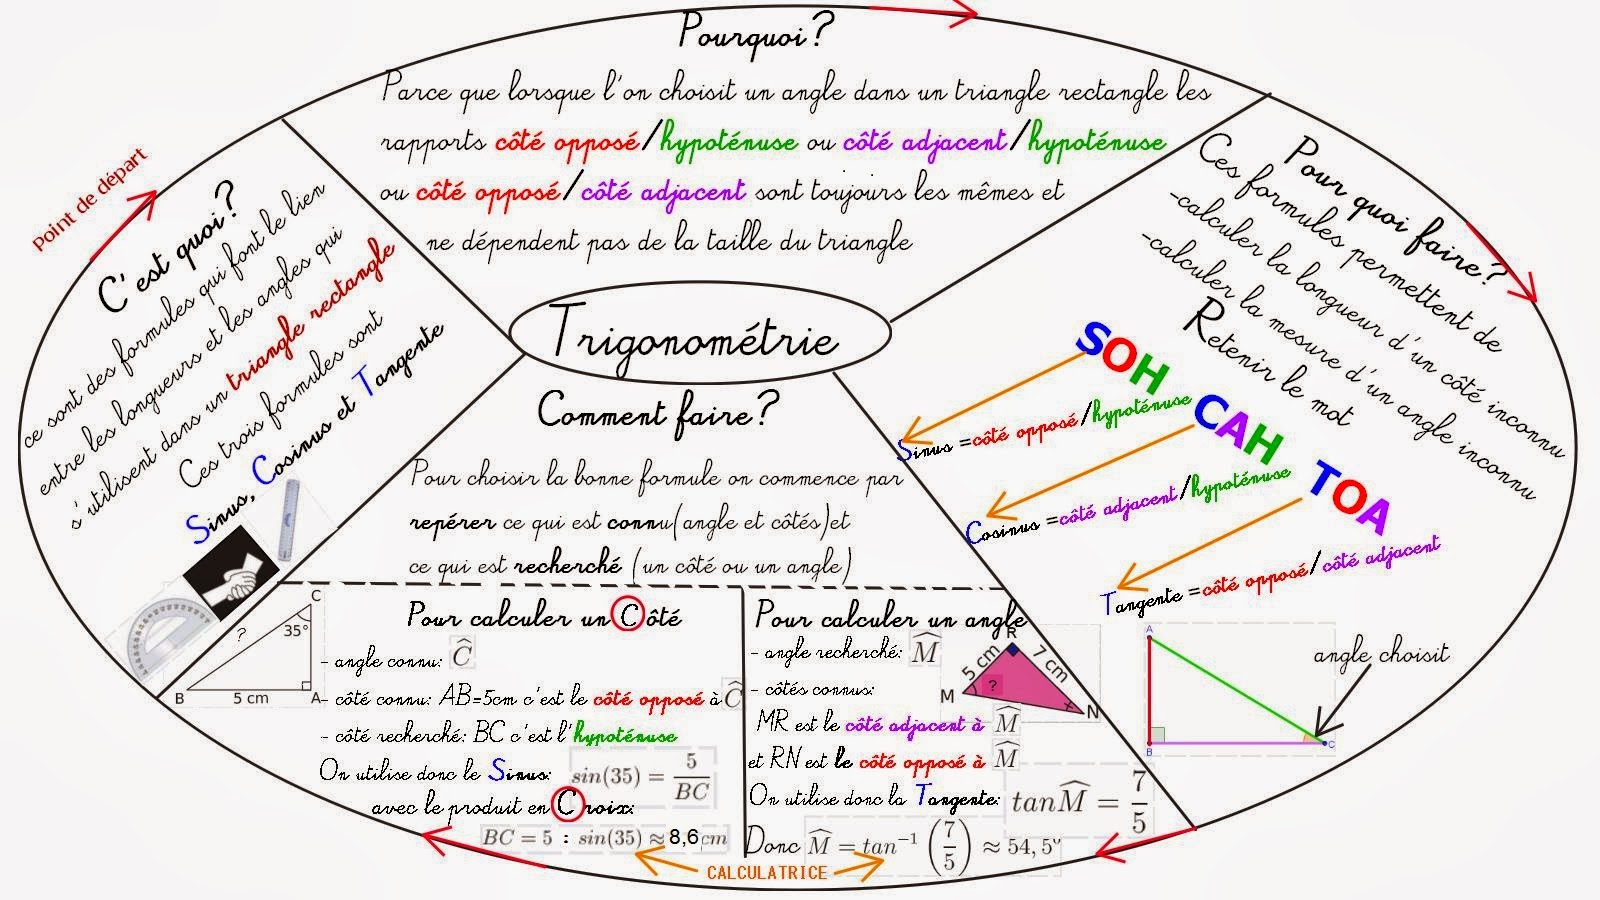 Point de départ
C'est quoi?
ce sont des formules qui font le lien
entre les longueurs et les angles qui
s'utilisent dans un triangle rectangle
Ces trois formules sont
Sinus, Cosinus et Tangente
Pourquoi?
Parce que lorsque l'on choisit un angle dans un triangle rectangle les
rapports côté opposé/hypoténuse ou côté adjacent/hypoténuse
ou côté opposé/côté adjacent sont toujours les mêmes et
ne dépendent pas de la taille du triangle
Trigonométrie
Pour quoi faire?
Ces formules permettent de
-calculer la longueur d'un côté inconnu
-calculer la mesure d'un angle inconnu
Retenir le mot
SOH CAH TOA
Sinus =côté opposé/hypoténuse
Cosinus =côté adjacent/hypoténuse
Tangente =côté opposé/côté adjacent
angle choisit
A
B
C
Comment faire?
Pour choisir la bonne formule on commence par
repérer ce qui est connu(angle et côtés)et
ce qui est recherché (un côté ou un angle)
Pour calculer un Côté
C
35°
?
B
5 cm
A
- angle connu: Ĉ
- côté connu: AB=5cm c'est le côté opposé à Ĉ
- côté recherché: BC c'est l'hypoténuse
On utilise donc le Sinus: sin(35) = 5/BC
avec le produit en Croix:
BC = 5 : sin(35) ≈ 8,6cm
Pour calculer un angle
R
5 cm
7 cm
M
?
N
- angle recherché: M̂
- côtés connus:
MR est le côté adjacent à M̂
et RN est le côté opposé à M̂
On utilise donc la Tangente: tanM̂ = 7/5
Donc M̂ = tan⁻¹(7/5) ≈ 54,5°
CALCULATRICE